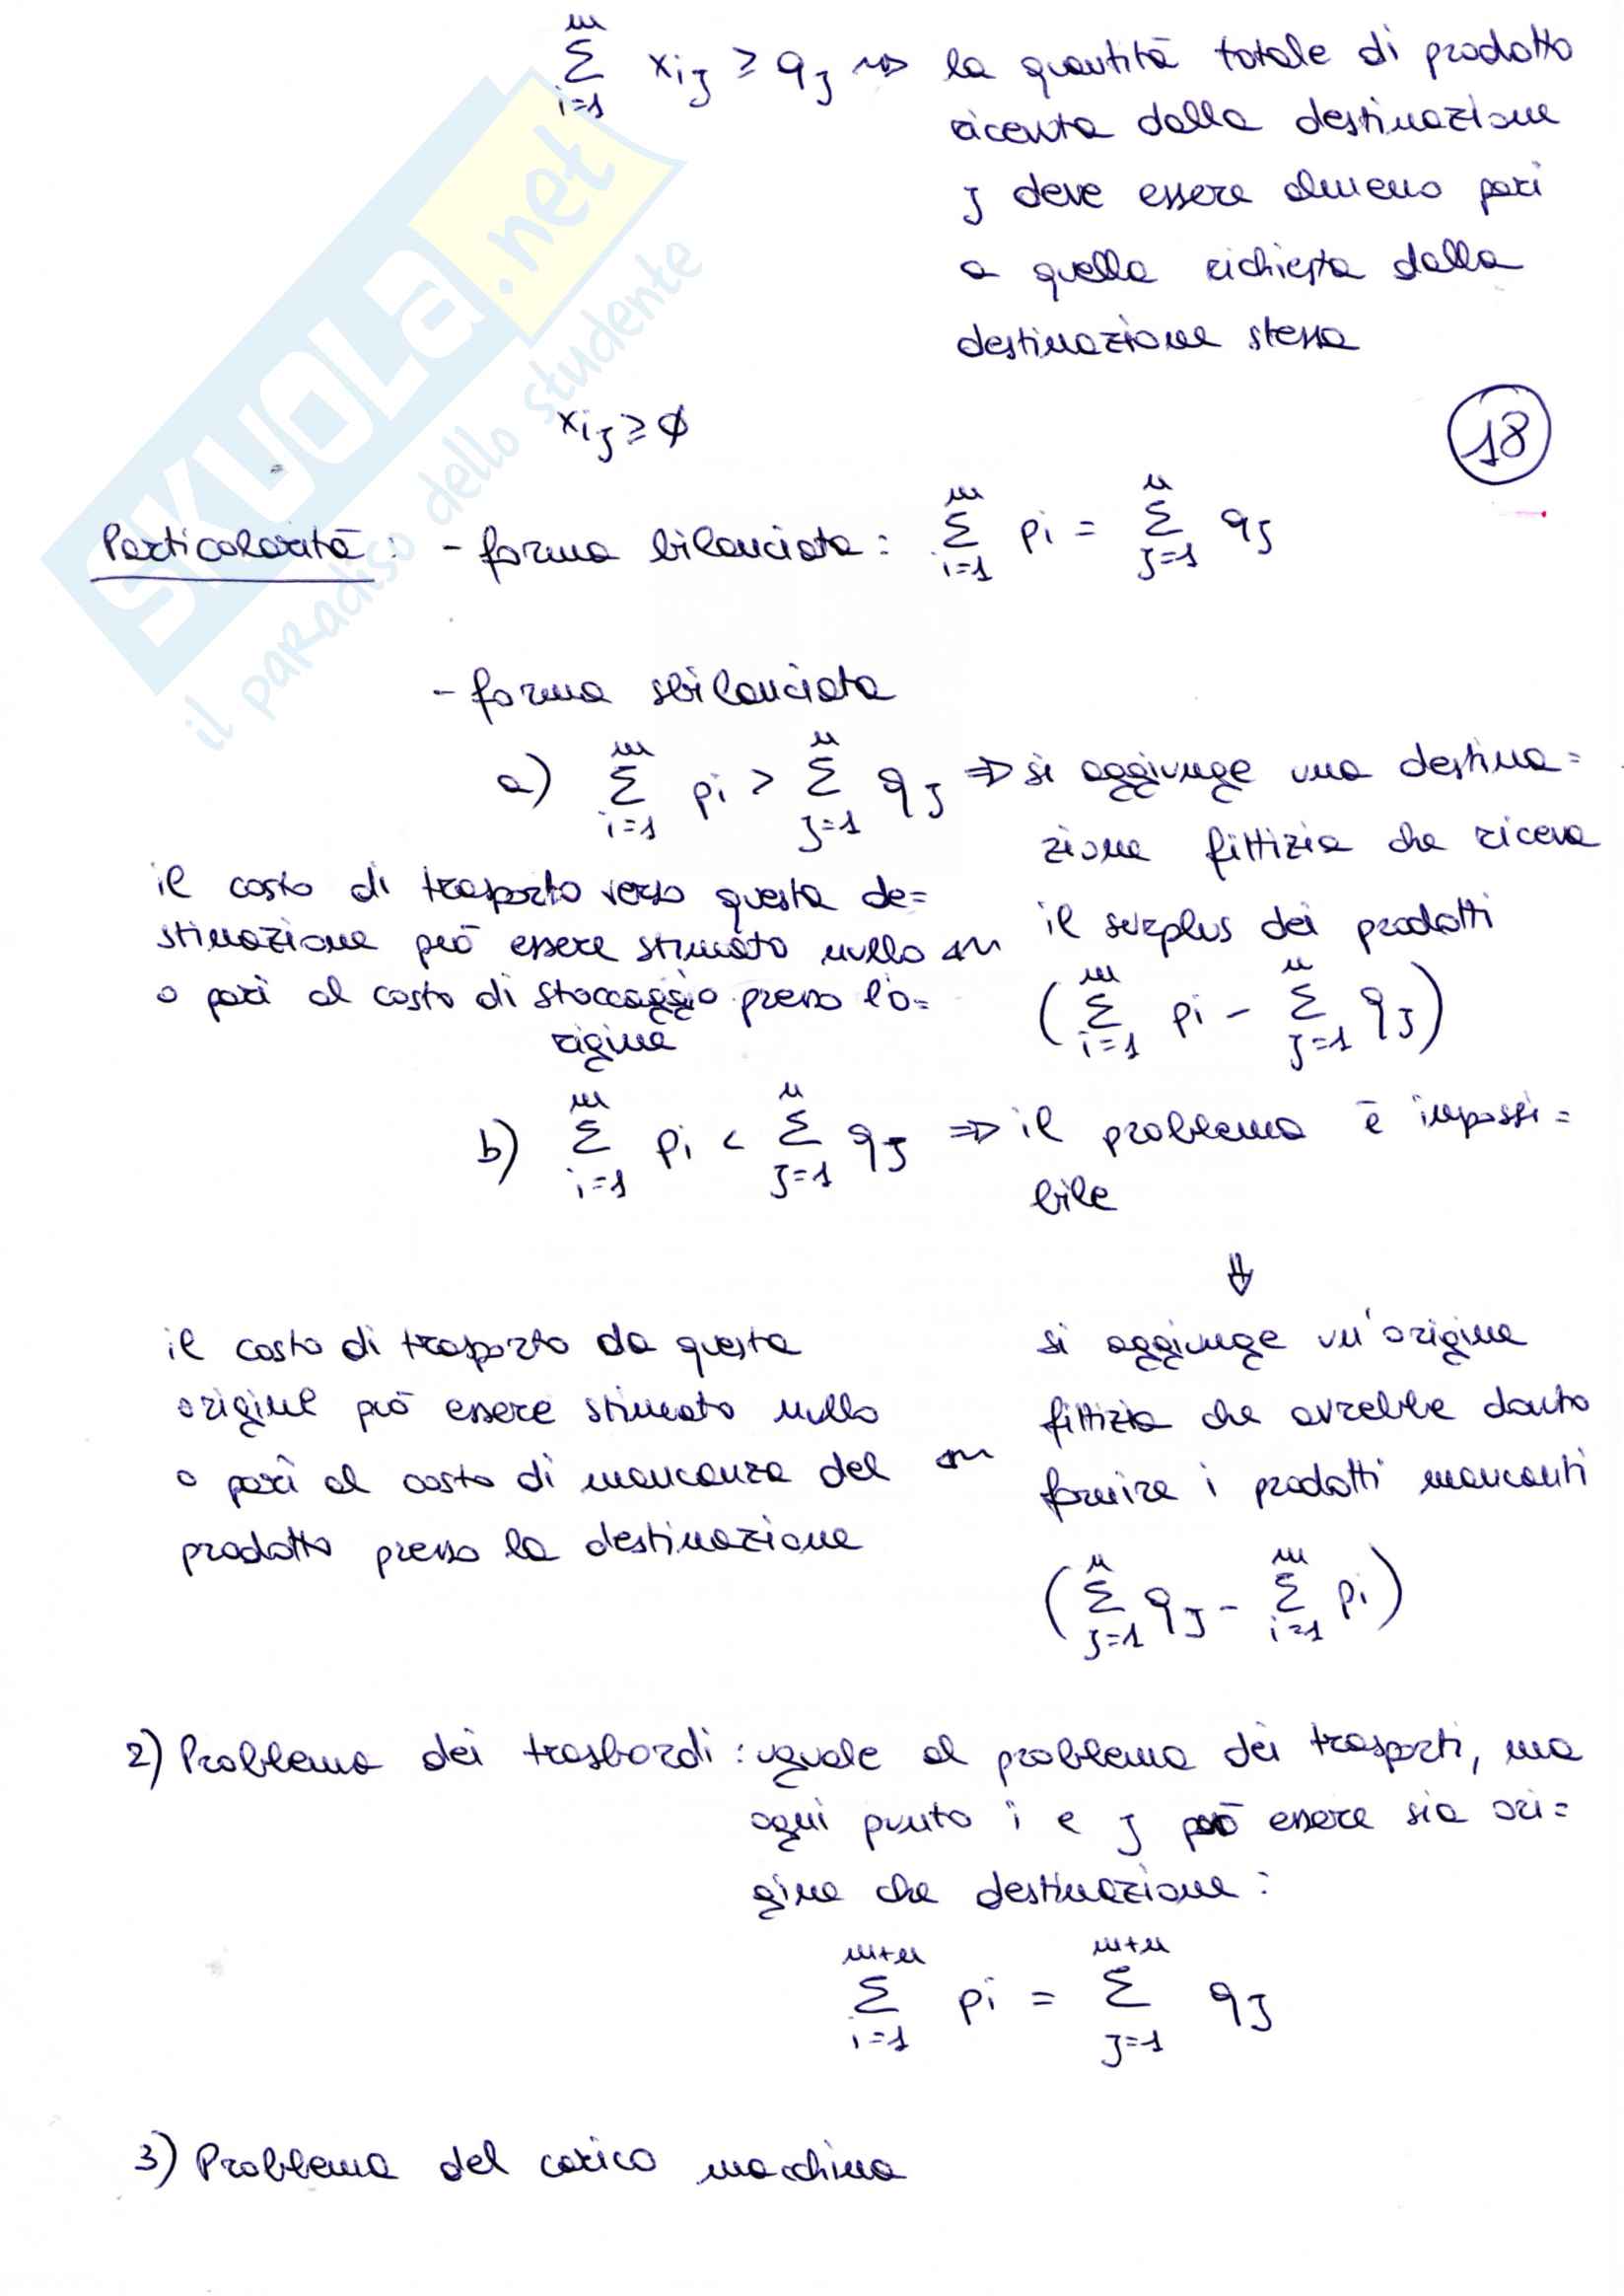 $\sum_{i=1}^{m} x_{ij} \geq q_j$ ⇝ la quantità totale di prodotto
ricevuta dalla destinazione
j deve essere almeno pari
a quella richiesta dalla
destinazione stessa
$x_{ij} \geq \emptyset$
18
Particolarità: - forma bilanciata: $\sum_{i=1}^{m} p_i = \sum_{j=1}^{n} q_j$
- forma sbilanciata
a) $\sum_{i=1}^{m} p_i > \sum_{j=1}^{n} q_j$ ⇒ si aggiunge una destina=
zione fittizia che riceva
il surplus dei prodotti
$(\sum_{i=1}^{m} p_i - \sum_{j=1}^{n} q_j)$
il costo di trasporto verso questa de=
stinazione può essere stimato nullo
o pari al costo di stoccaggio presso l'o=
rigine
b) $\sum_{i=1}^{m} p_i < \sum_{j=1}^{n} q_j$ ⇒ il problema è impossi=
bile
⇓
si aggiunge un'origine
fittizia che avrebbe dovuto
fornire i prodotti mancanti
$(\sum_{j=1}^{n} q_j - \sum_{i=1}^{m} p_i)$
il costo di trasporto da questa
origine può essere stimato nullo
o pari al costo di mancanza del
prodotto presso la destinazione
2) Problema dei trasbordi: uguale al problema dei trasporti, ma
ogni punto i e j può essere sia ori=
gine che destinazione:
$\sum_{i=1}^{m+n} p_i = \sum_{j=1}^{m+n} q_j$
3) Problema del carico macchina
SKUOLa.net
il paradiso dello studente